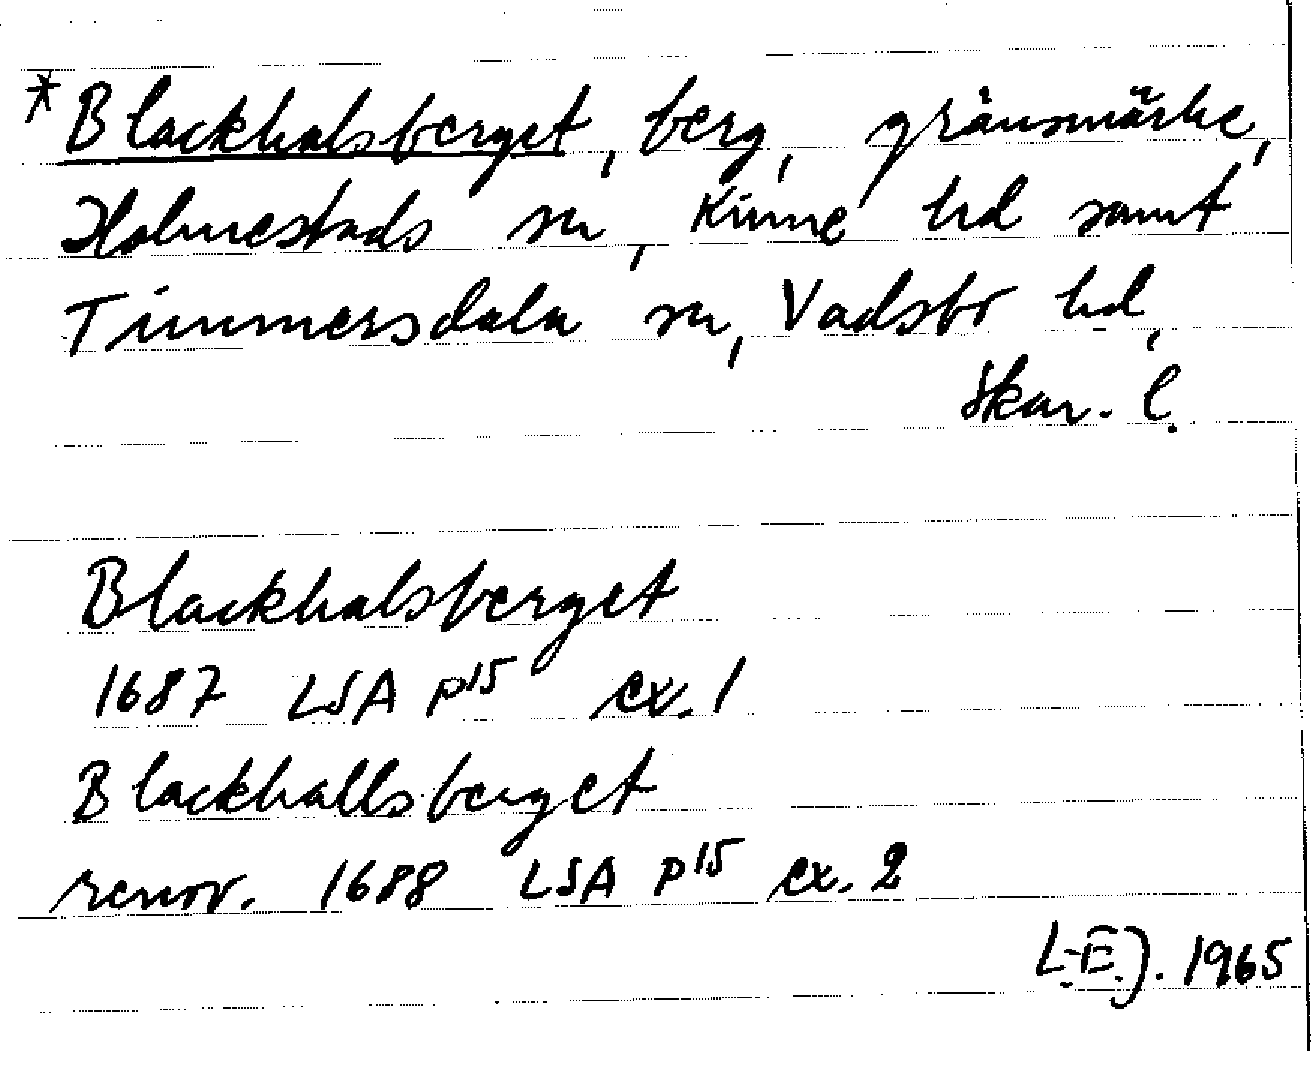 *Blackhalsberget, berg, gränsmärke,
Holmestads sn, Kinne hd samt
Timmersdala sn, Vadsbo hd,
Skar. l.
Blackhalsberget
1687 LSA P15 ex. 1
Blackhallsberget
renov. 1688 LSA P15 ex. 2
L-EJ. 1965